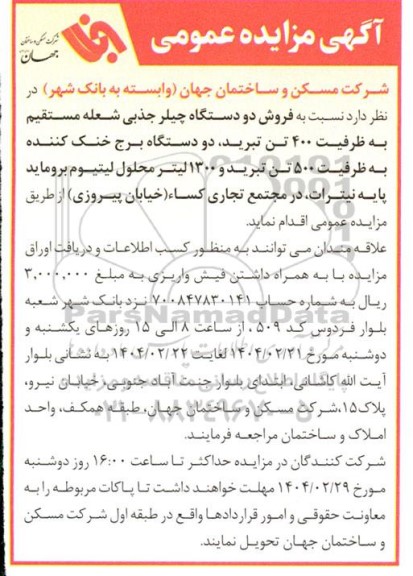 آگهی مزایده عمومی
شرکت مسکن و ساختمان
جهان
شرکت مسکن و ساختمان جهان (وابسته به بانک شهر) در
نظر دارد نسبت به فروش دو دستگاه چیلر جذبی شعله مستقیم
به ظرفیت ۴۰۰ تن تبرید، دو دستگاه برج خنک کننده
به ظرفیت ۵۰۰ تن تبرید و ۱۳۰۰ لیتر محلول لیتیوم بروماید
پایه نیترات، در مجتمع تجاری کساء(خیابان پیروزی) از طریق
مزایده عمومی اقدام نماید.
علاقه مندان می توانند به منظور کسب اطلاعات و دریافت اوراق
مزایده با به همراه داشتن فیش واریزی به مبلغ ۳,۰۰۰,۰۰۰
ریال به شماره حساب ۷۰۰۸۴۷۸۳۰۱۴۱ نزد بانک شهر شعبه
بلوار فردوس کد ۵۰۹، از ساعت ۸ الی ۱۵ روزهای یکشنبه و
دوشنبه مورخ ۱۴۰۴/۰۲/۲۱ لغایت ۱۴۰۴/۰۲/۲۲ به نشانی بلوار
آیت الله کاشانی، ابتدای بلوار جنت آباد جنوبی، خیابان نیرو،
پلاک۱۵،شرکت مسکن و ساختمان جهان، طبقه همکف، واحد
املاک و ساختمان مراجعه فرمایند.
شرکت کنندگان در مزایده حداکثر تا ساعت ۱۶:۰۰ روز دوشنبه
مورخ ۱۴۰۴/۰۲/۲۹ مهلت خواهند داشت تا پاکات مربوطه را به
معاونت حقوقی و امور قراردادها واقع در طبقه اول شرکت مسکن
و ساختمان جهان تحویل نمایند.
ParsNamadData